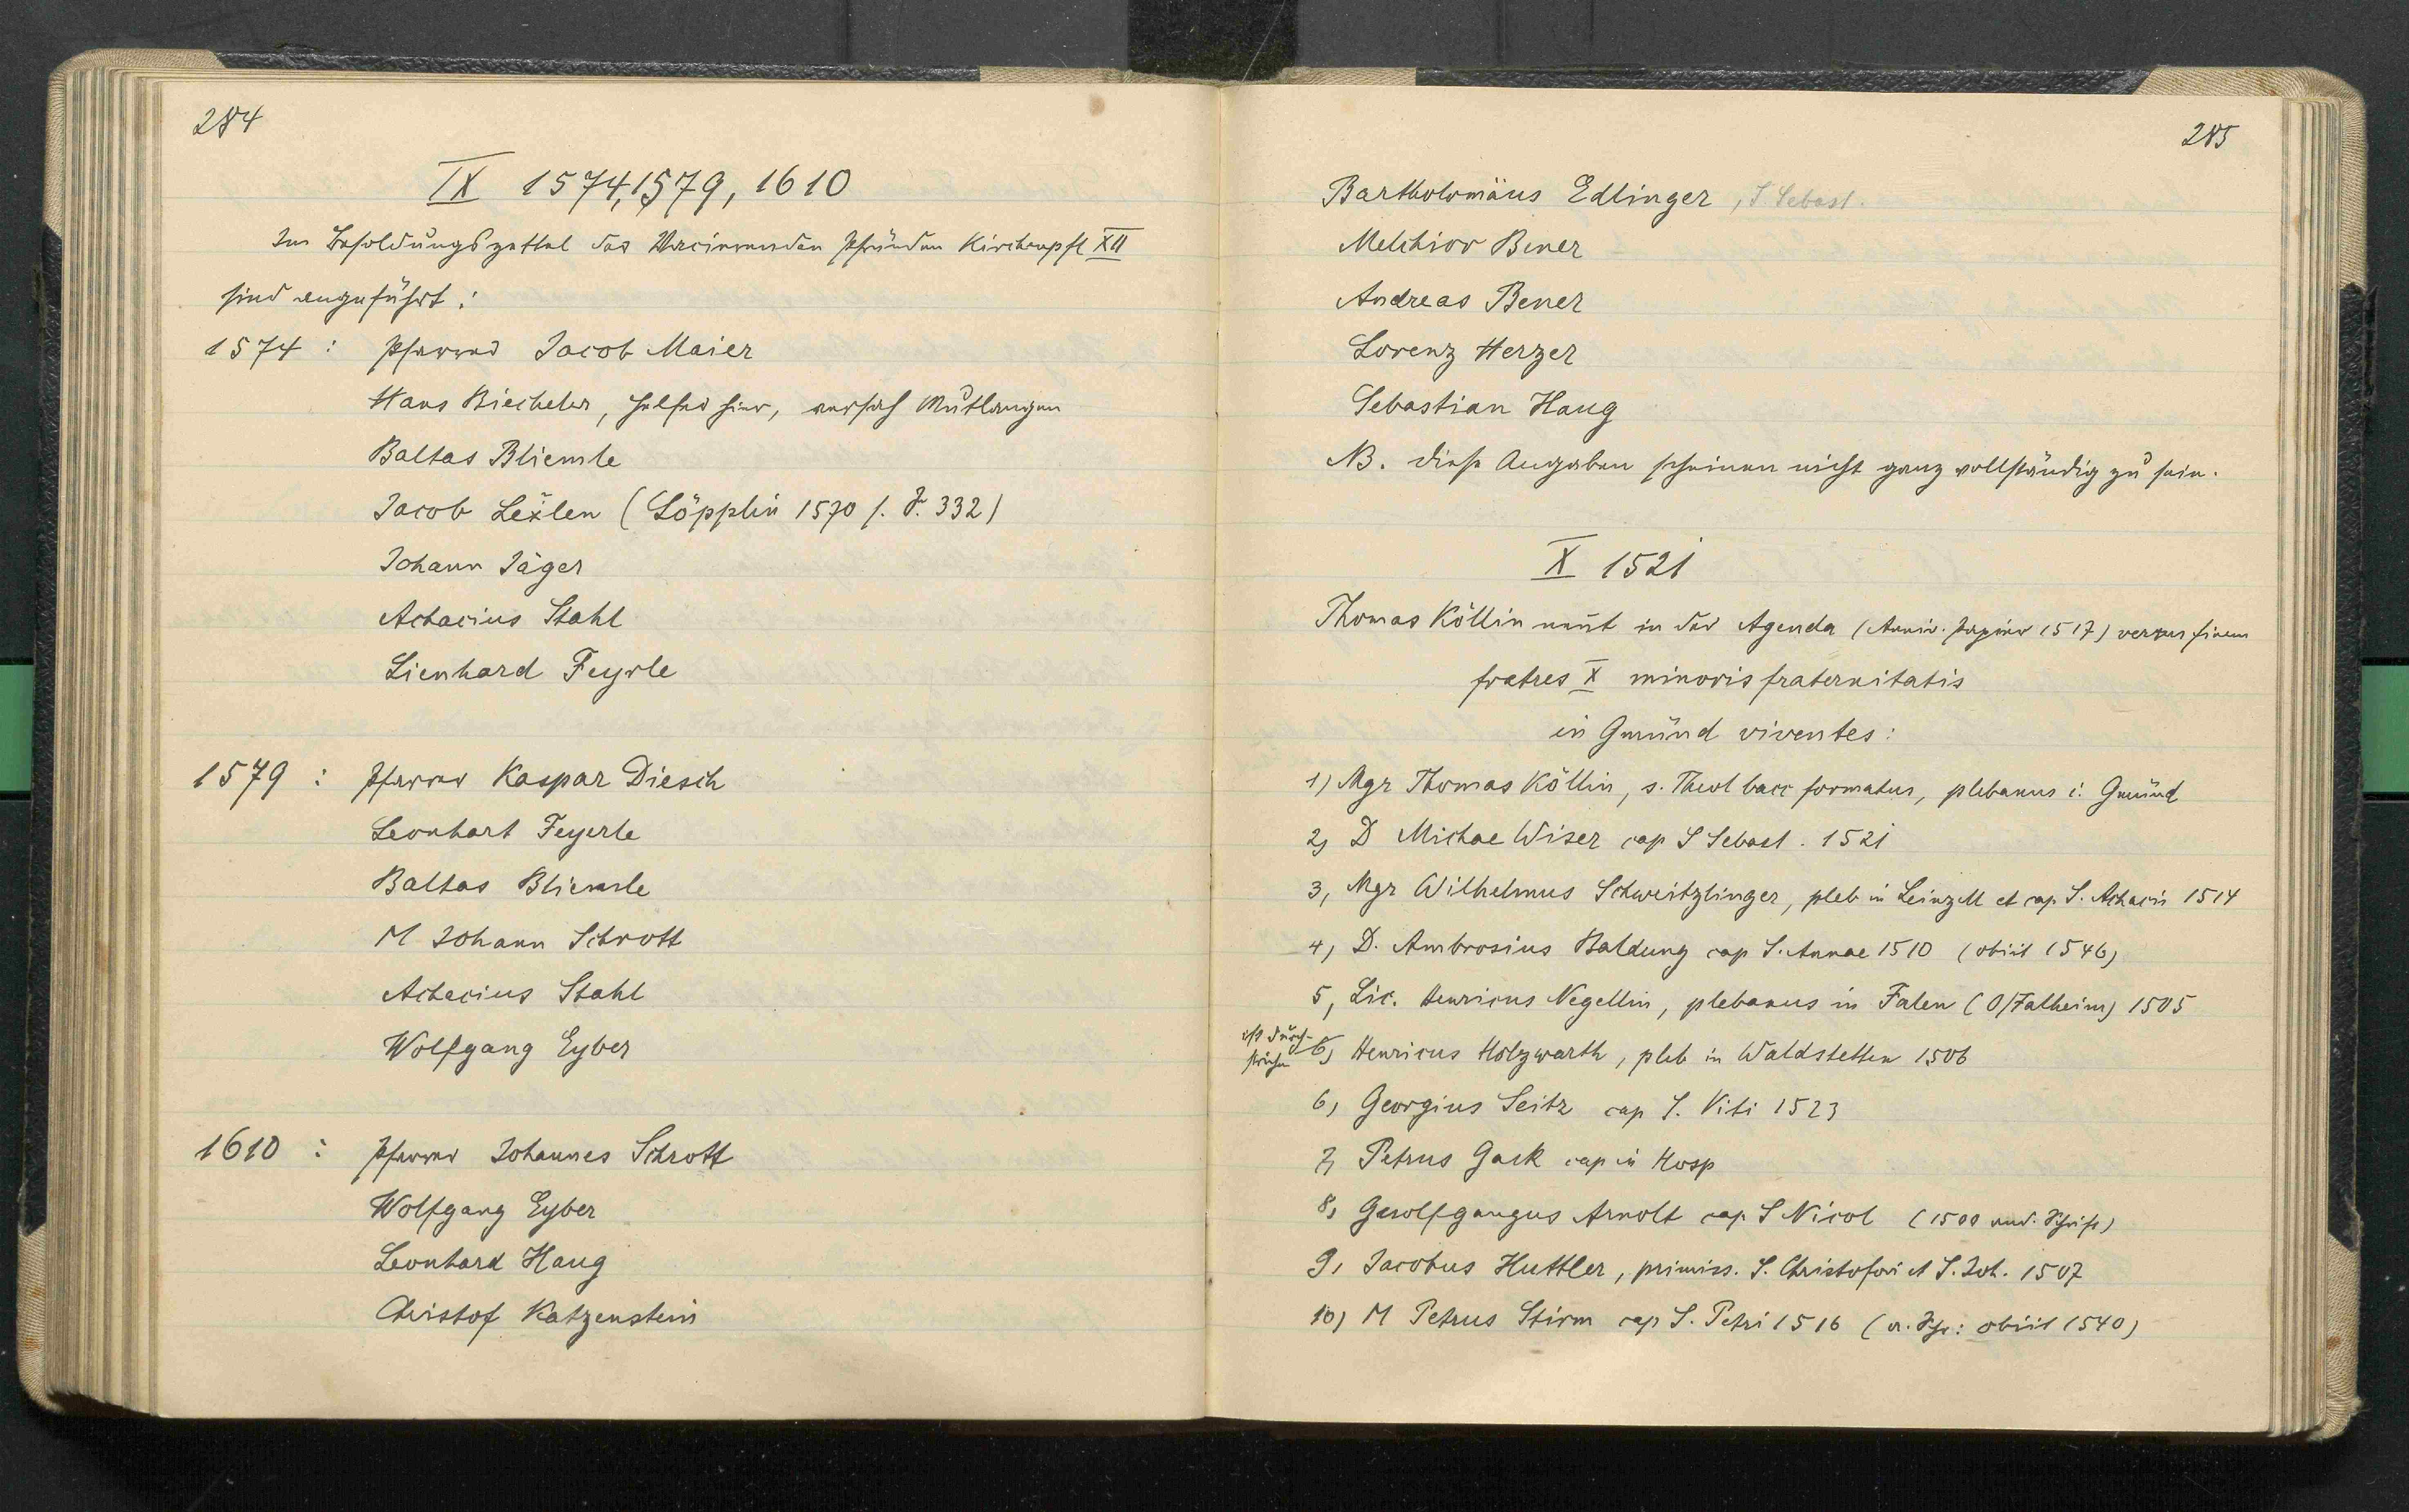 284
IX 1574, 1579, 1610
Im Besoldungszettel der Vacirenden Pfründen Kirchenpfl XII
sind angeführt:
1574: Pfarrer Jacob Maier
Hans Biecheler, Helfer hier, versah Mutlangen
Baltas Bliemle
Jacob Lexlen (Löpplin 1570 s. S. 332)
Johann Jäger
Achacius Stahl
Lienhard Feyrle
1579: Pfarrer Kaspar Diesch
Leonhart Feyerle
Baltas Bliemle
M Johann Schrott
Achacius Stahl
Wolfgang Eyber
1610: Pfarrer Johannes Schrott
Wolfgang Eyber
Leonhard Haug
Christof Katzenstein
285
Bartholomäus Edlinger, S. Sebast.
Melchior Bener
Andreas Bener
Lorenz Herzer
Sebastian Haug
NB. Diese Angaben scheinen nicht ganz vollständig zu sein.
X 1521
Thomas Köllin nennt in der Agenda (Anniv. Papier 1517) versus finem
fratres X minoris fraternitatis
in Gmünd viventes:
1) Mgr Thomas Köllin, s. Theol bacc formatus, plebanus i. Gmünd
2) D Michae Wiser cap S Sebast. 1521
3, Mgr Wilhelmus Schweitzlinger, pleb in Leinzell et cap S. Achacii 1514
4) D. Ambrosius Baldung cap S. Annae 1510 (obiit 1546)
5, Lic. Henricus Negellin, plebanus in Falen (O/Falheim) 1505
ist durch-
strichen 6) Henricus Holzwarth, pleb in Waldstetten 1506
6) Georgius Seitz cap S. Viti 1523
7, Petrus Gack cap in Hosp
8, Gwolfgangus Arnolt cap S Nicol (1500 and. Schrift)
9, Jacobus Huttler, primiss. S. Christofori et S. Joh. 1507
10) M Petrus Stirm cap S. Petri 1516 (a. Schr: obiit 1540)